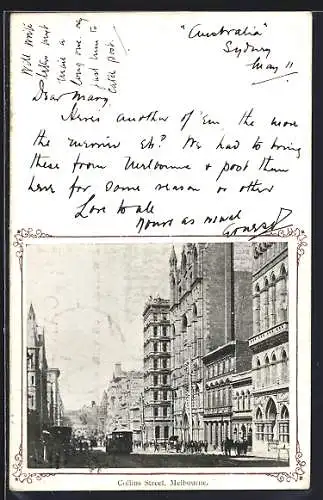 "Australia"
Sydney
May 11
Dear Mary,
Heres another of 'em the more
the merrier Eh? We had to bring
these from Melbourne & post them
here for some reason or other
Love to all
Yours as usual
Will write
letter
write a
long one. my
just been to
later post.
Collins Street, Melbourne.